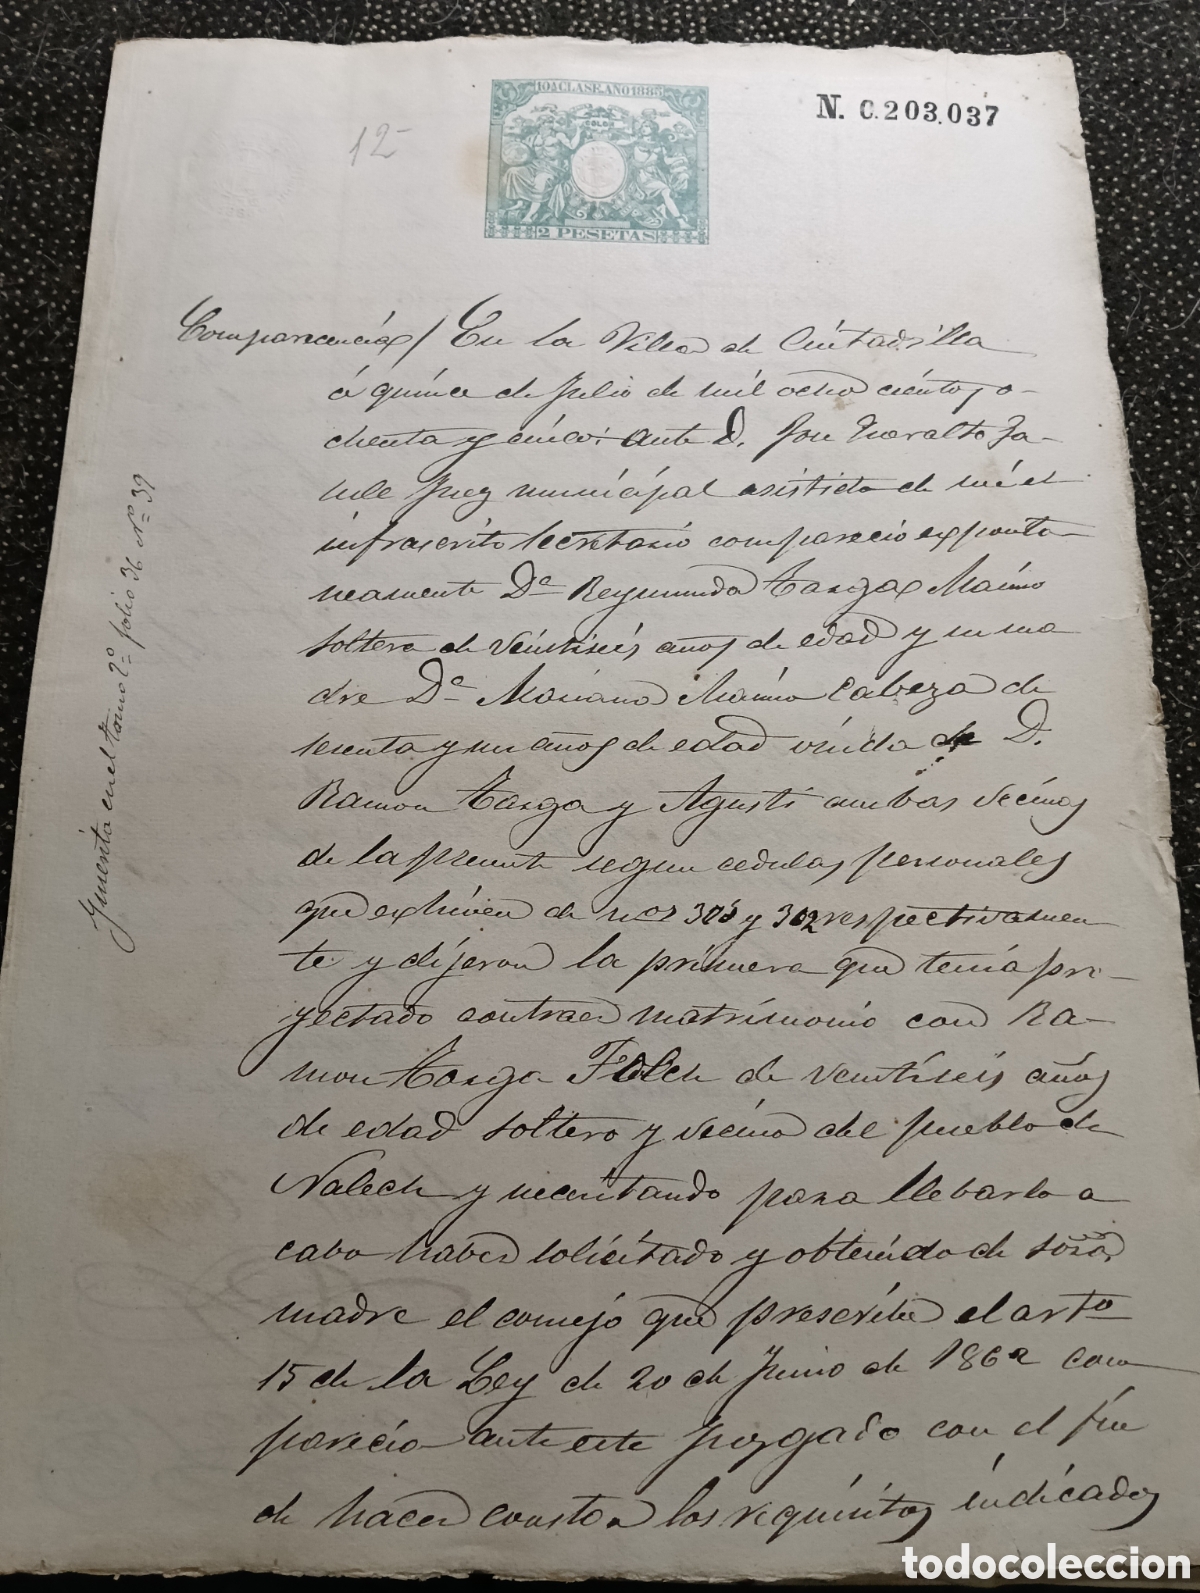 10ª CLASE. AÑO 1885
COLON
2 PESETAS
N. C.203.037
12
Comparecencia / En la Villa de Ciutadilla
á quince de Julio de mil ocho cientos o-
chenta y cinco: ante D. José
Juez municipal asistido de mi el
infrascrito Secretario compareció expontá
neamente Dª Reymunda Targa Marimo
soltera de veintiseis años de edad y su ma
dre Dª Mariana Marimo Cabeza de
sesenta y un años de edad viuda de D.
Ramon Targa y Agustí ambas vecinas
de la presente segun cedulas personales
que exhiven de nos y 302 respectivamen
te y dijeron la primera que tenia pro-
yectado contraer matrimonio con Ra-
mon Targa Folch de veintiseis años
de edad soltero y vecino del pueblo de
Nalech y necesitando para llebarlo a
cabo haber solicitado y obtenido de
madre el consejo que prescribe el arto
15 de la Ley de 20 de Junio de 1862 com
parecia ante este Juzgado con el fin
de hacer constar los requisitos indicados
en el tomo 2º folio 36 Nº 39
todocoleccion